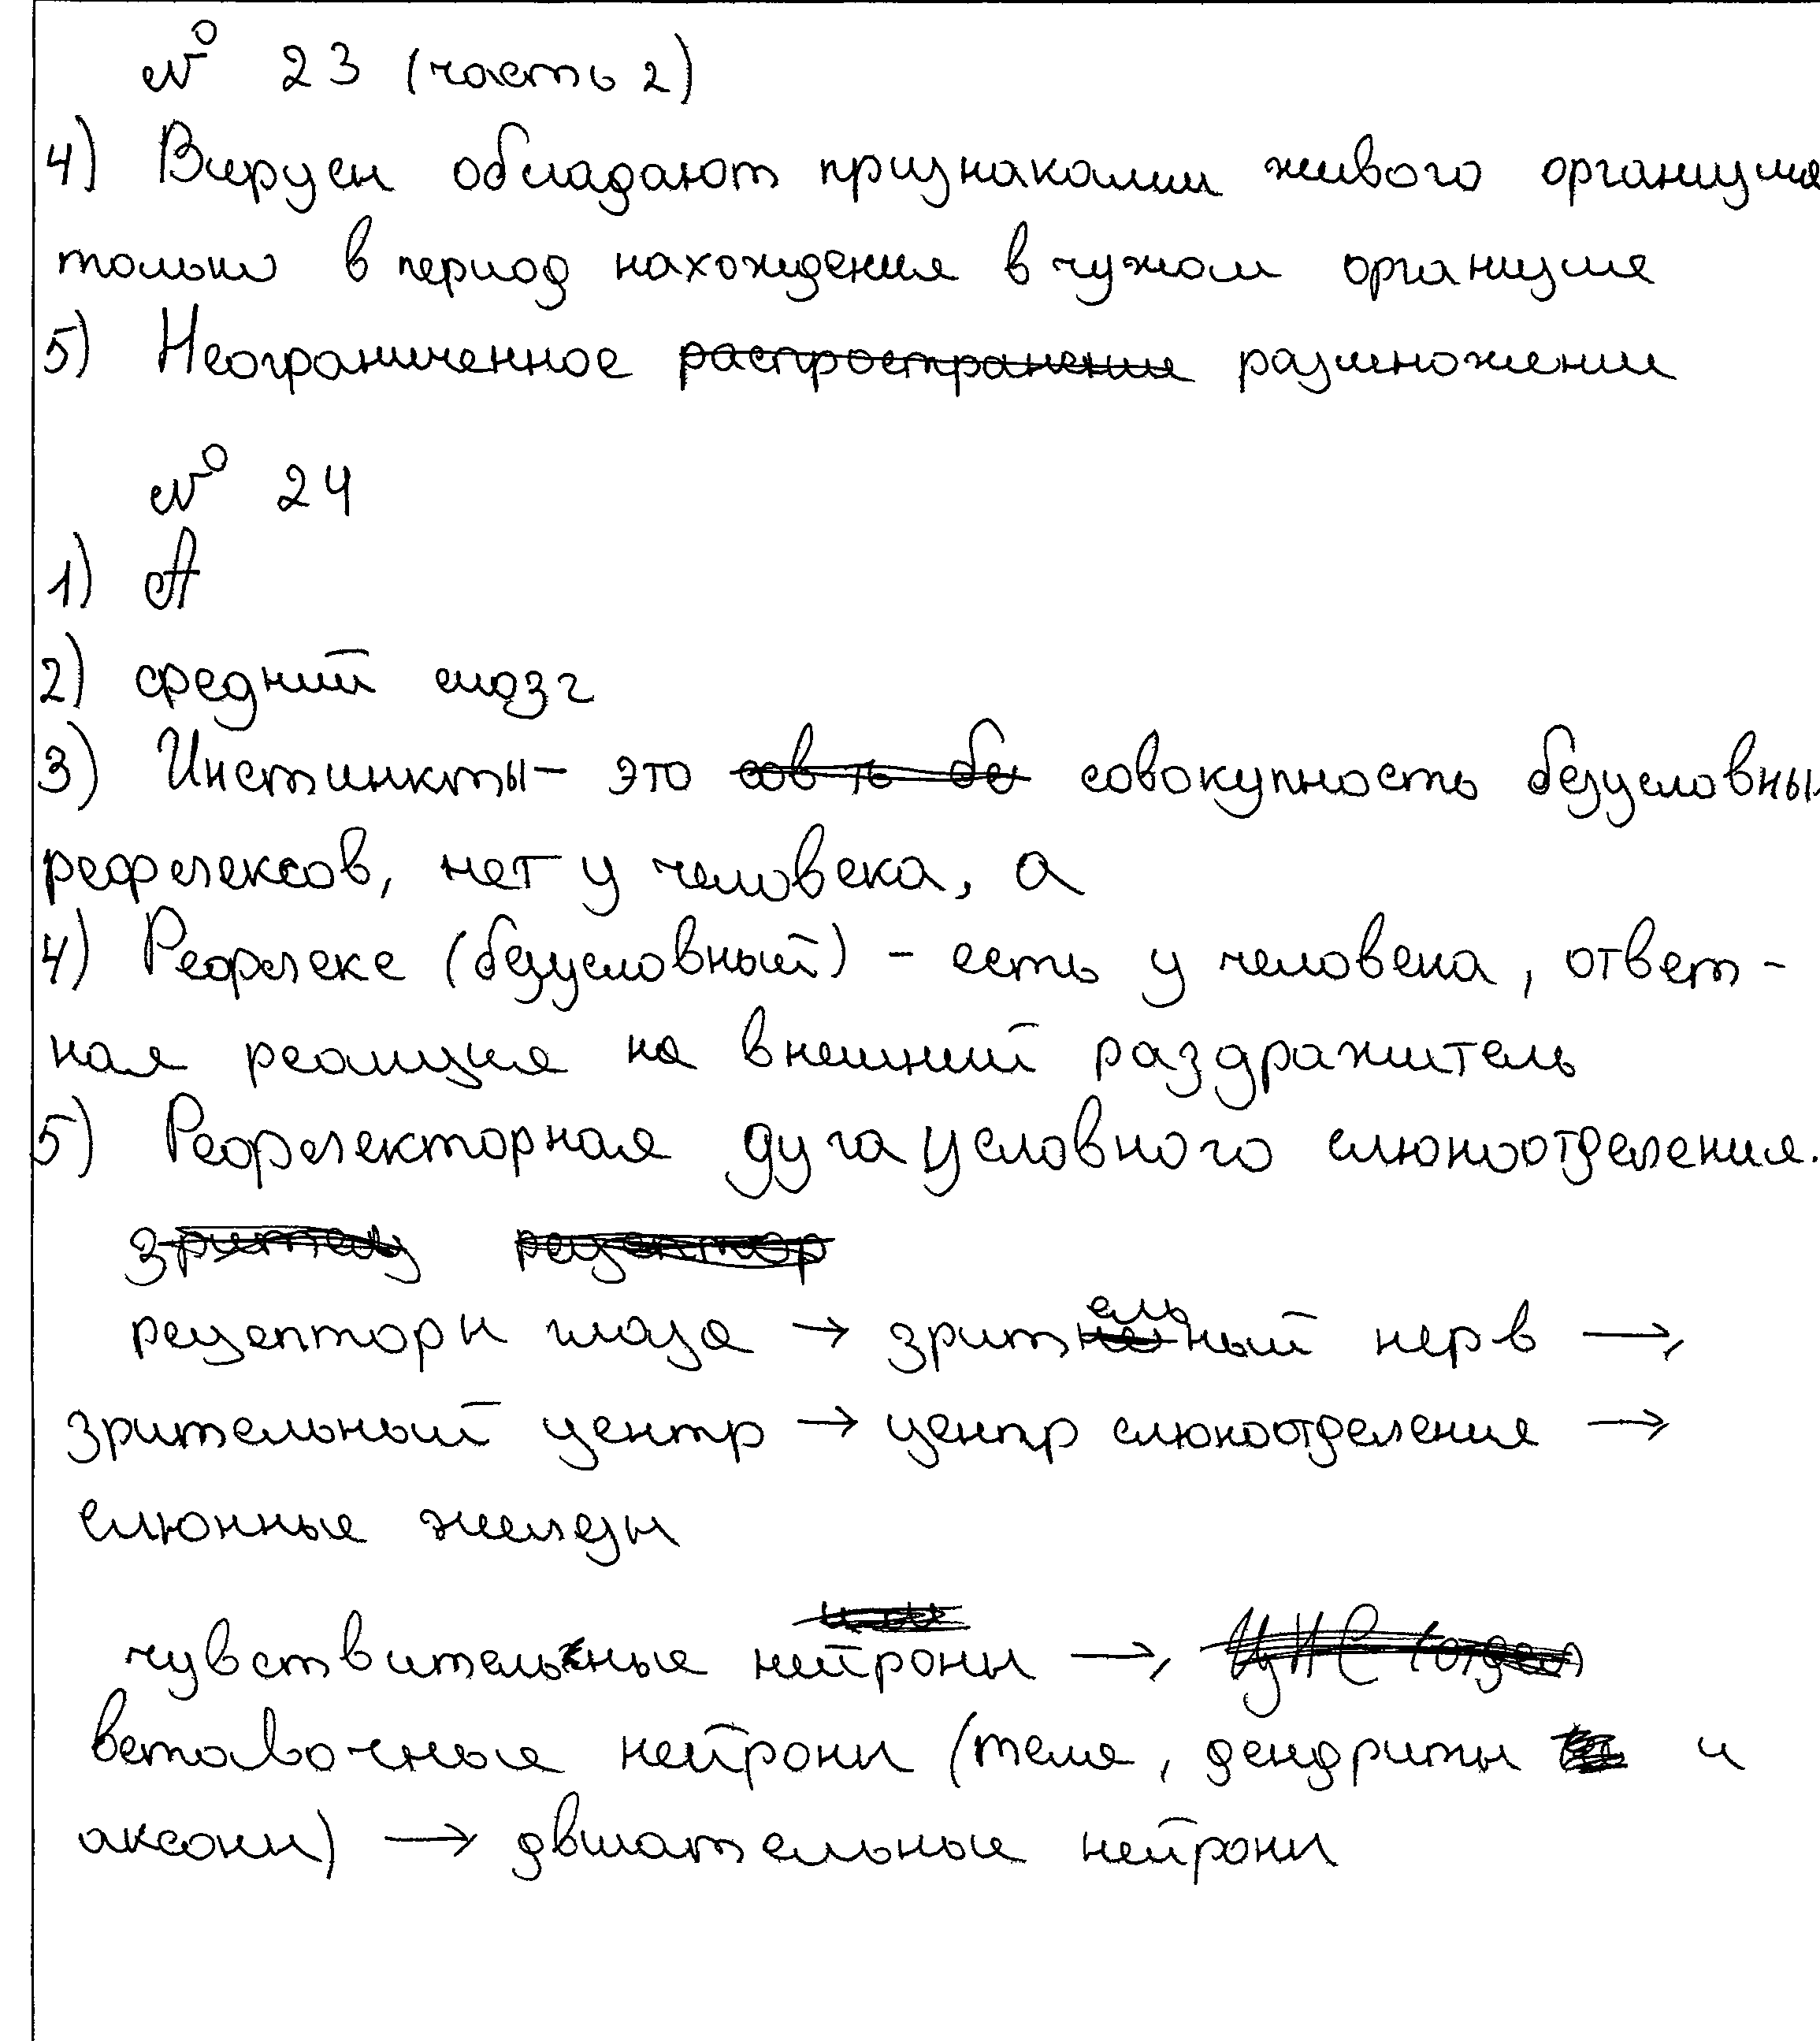 № 23 (часть 2)
4) Вирусы обладают признаками живого организма
только в период нахождения в чужом организме
5) Неограниченное распространение размножении
№ 24
1) А
2) средний мозг
3) Инстинкты - это сов ть бе совокупность безусловных
рефлексов, нет у человека, а
4) Рефлекс (безусловный) - есть у человека, ответ-
ная реакция на внешний раздражитель
5) Рефлекторная дуга условного слюноотделения.
рецептор
рецепторы глаза → зрительный нерв →
зрительный центр → центр слюноотделения →
слюнные железы
чувствительные нейроны →
вставочные нейроны (тела, дендриты и
аксоны) → двигательные нейроны